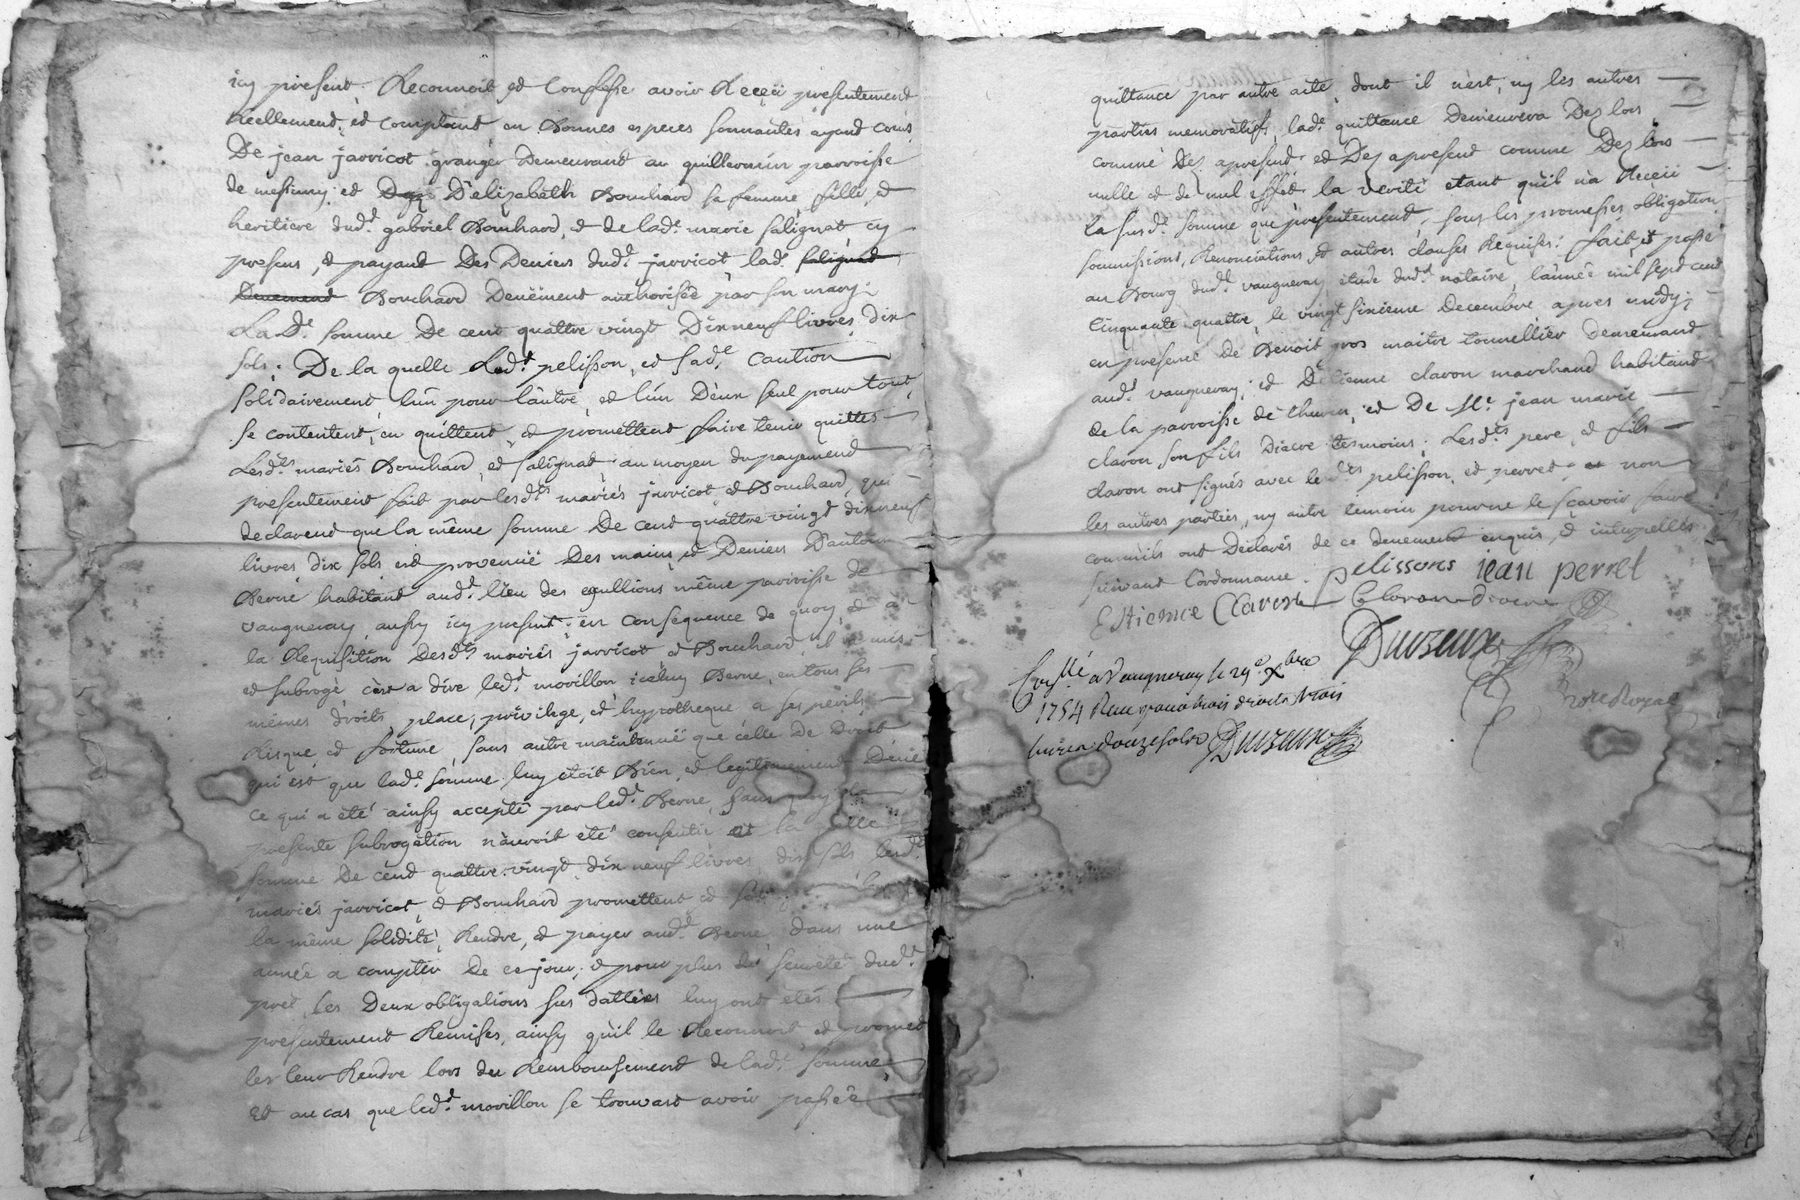 icy présent. Reconnoit et Confesse avoir Reçeü présentement
Réellement, et comptant en Bonnes especes sonnantes ayand cours
De jean jarricot granger Demeurand au guillermin parroisse
de messimy; et D'élizabeth Bouchard sa femme, fille, et
heritiere dud.t gabriel Bouchard, et de lad.e marie salignat cy
presens, et payant Des Deniers dud.t jarricot lad.e salignat
Deuement Bouchard Deuëment authorisée par son mary;
La D.e somme De cent quattre vingt Dixneuf livres, dix
sols; De la quelle Led.t pelisson, et sad.e Caution
solidairement, l'un pour l'autre, et l'un D'eux seul pour tout,
se contentent, en quittent, et promettent faire tenir quittes
Lesd.ts mariés Bouchard, et salignat au moyen du payement
presentement fait par lesd.ts mariés jarricot, et Bouchard, qui
declarent que la même somme De cent quattre vingt dixneuf
livres, dix sols est provenuë Des mains, et Deniers D'antoine
Berne habitant aud.t lieu des egullions même parroisse de
vaugneray, aussy icy present; en conséquence de quoy, et à
la Requisition Desd.ts mariés jarricot et Bouchard, il a mis
et subrogé c'est a dire led.t morillon iceluy Berne, en tous ses
mêmes droits, place, privilége, et hypotheque a ses perils
Risque, et fortune, sans autre maintenuë que celle De Droit
qui est que lad.e somme luy étoit Bien, et legitimement Deüe
ce qui a été ainsy accepté par led.t Berne, sans quoy la
presente subrogation n'auroit eté consentie et la
somme De cent quattre vingt dix neuf livres, dix sols lesd.ts
mariés jarricot, et Bouchard promettent et
la même solidité, Rendre, et payer aud.t Berne, dans une
année a compter De ce jour; et pour plus de seureté dud.t
pret, les Deux obligations sus dattées luy ont etés
presentement Remises, ainsy qu'il le Reconnoit, et promet
les leur Rendre lors du Remboursement de lad.e somme
Et au cas que led.t morillon se trouvast avoir passée
quittance par autre acte, dont il n'est, ny les autres
parties memoratifs, lad.e quittance Demeurera Dez lors
comme Dez apresent, et Dez apresent comme Dez lors
nulle et de nul effét la verité etant qu'il n'a Reçeü
La susd.e somme que présentement, sous les promesses, obligation
soumissions, Renonciations, et autres clauses Requises; fait, et passé
au Bourg dud.t vaugneray étude dud.t notaire, l'année mil sept cent
Cinquante quattre, le vingt sixieme Decembre apres midy;
en présence De Benoit gros maitre tonnellier demeurand
aud.t vaugneray; et D'étienne clavon marchand habitand
de la parroisse de thurin, et De M.e jean marie
clavon son fils Diacre tesmoins; Lesd.ts pere, et fils
clavon ont signés avec lesd.ts pelisson, et perret, et non
les autres parties, ny autre temoin pour ne le sçavoir faire
comm'ils ont Déclarés de ce deuement enquis, et interpellés
suivant l'ordonnance. pelissons iean perret
Estienne Claron Claron diacre
Duvzeux
Con.llé a Vaugneray le 29.e Xbre
1754 Reçu
Duvzeux